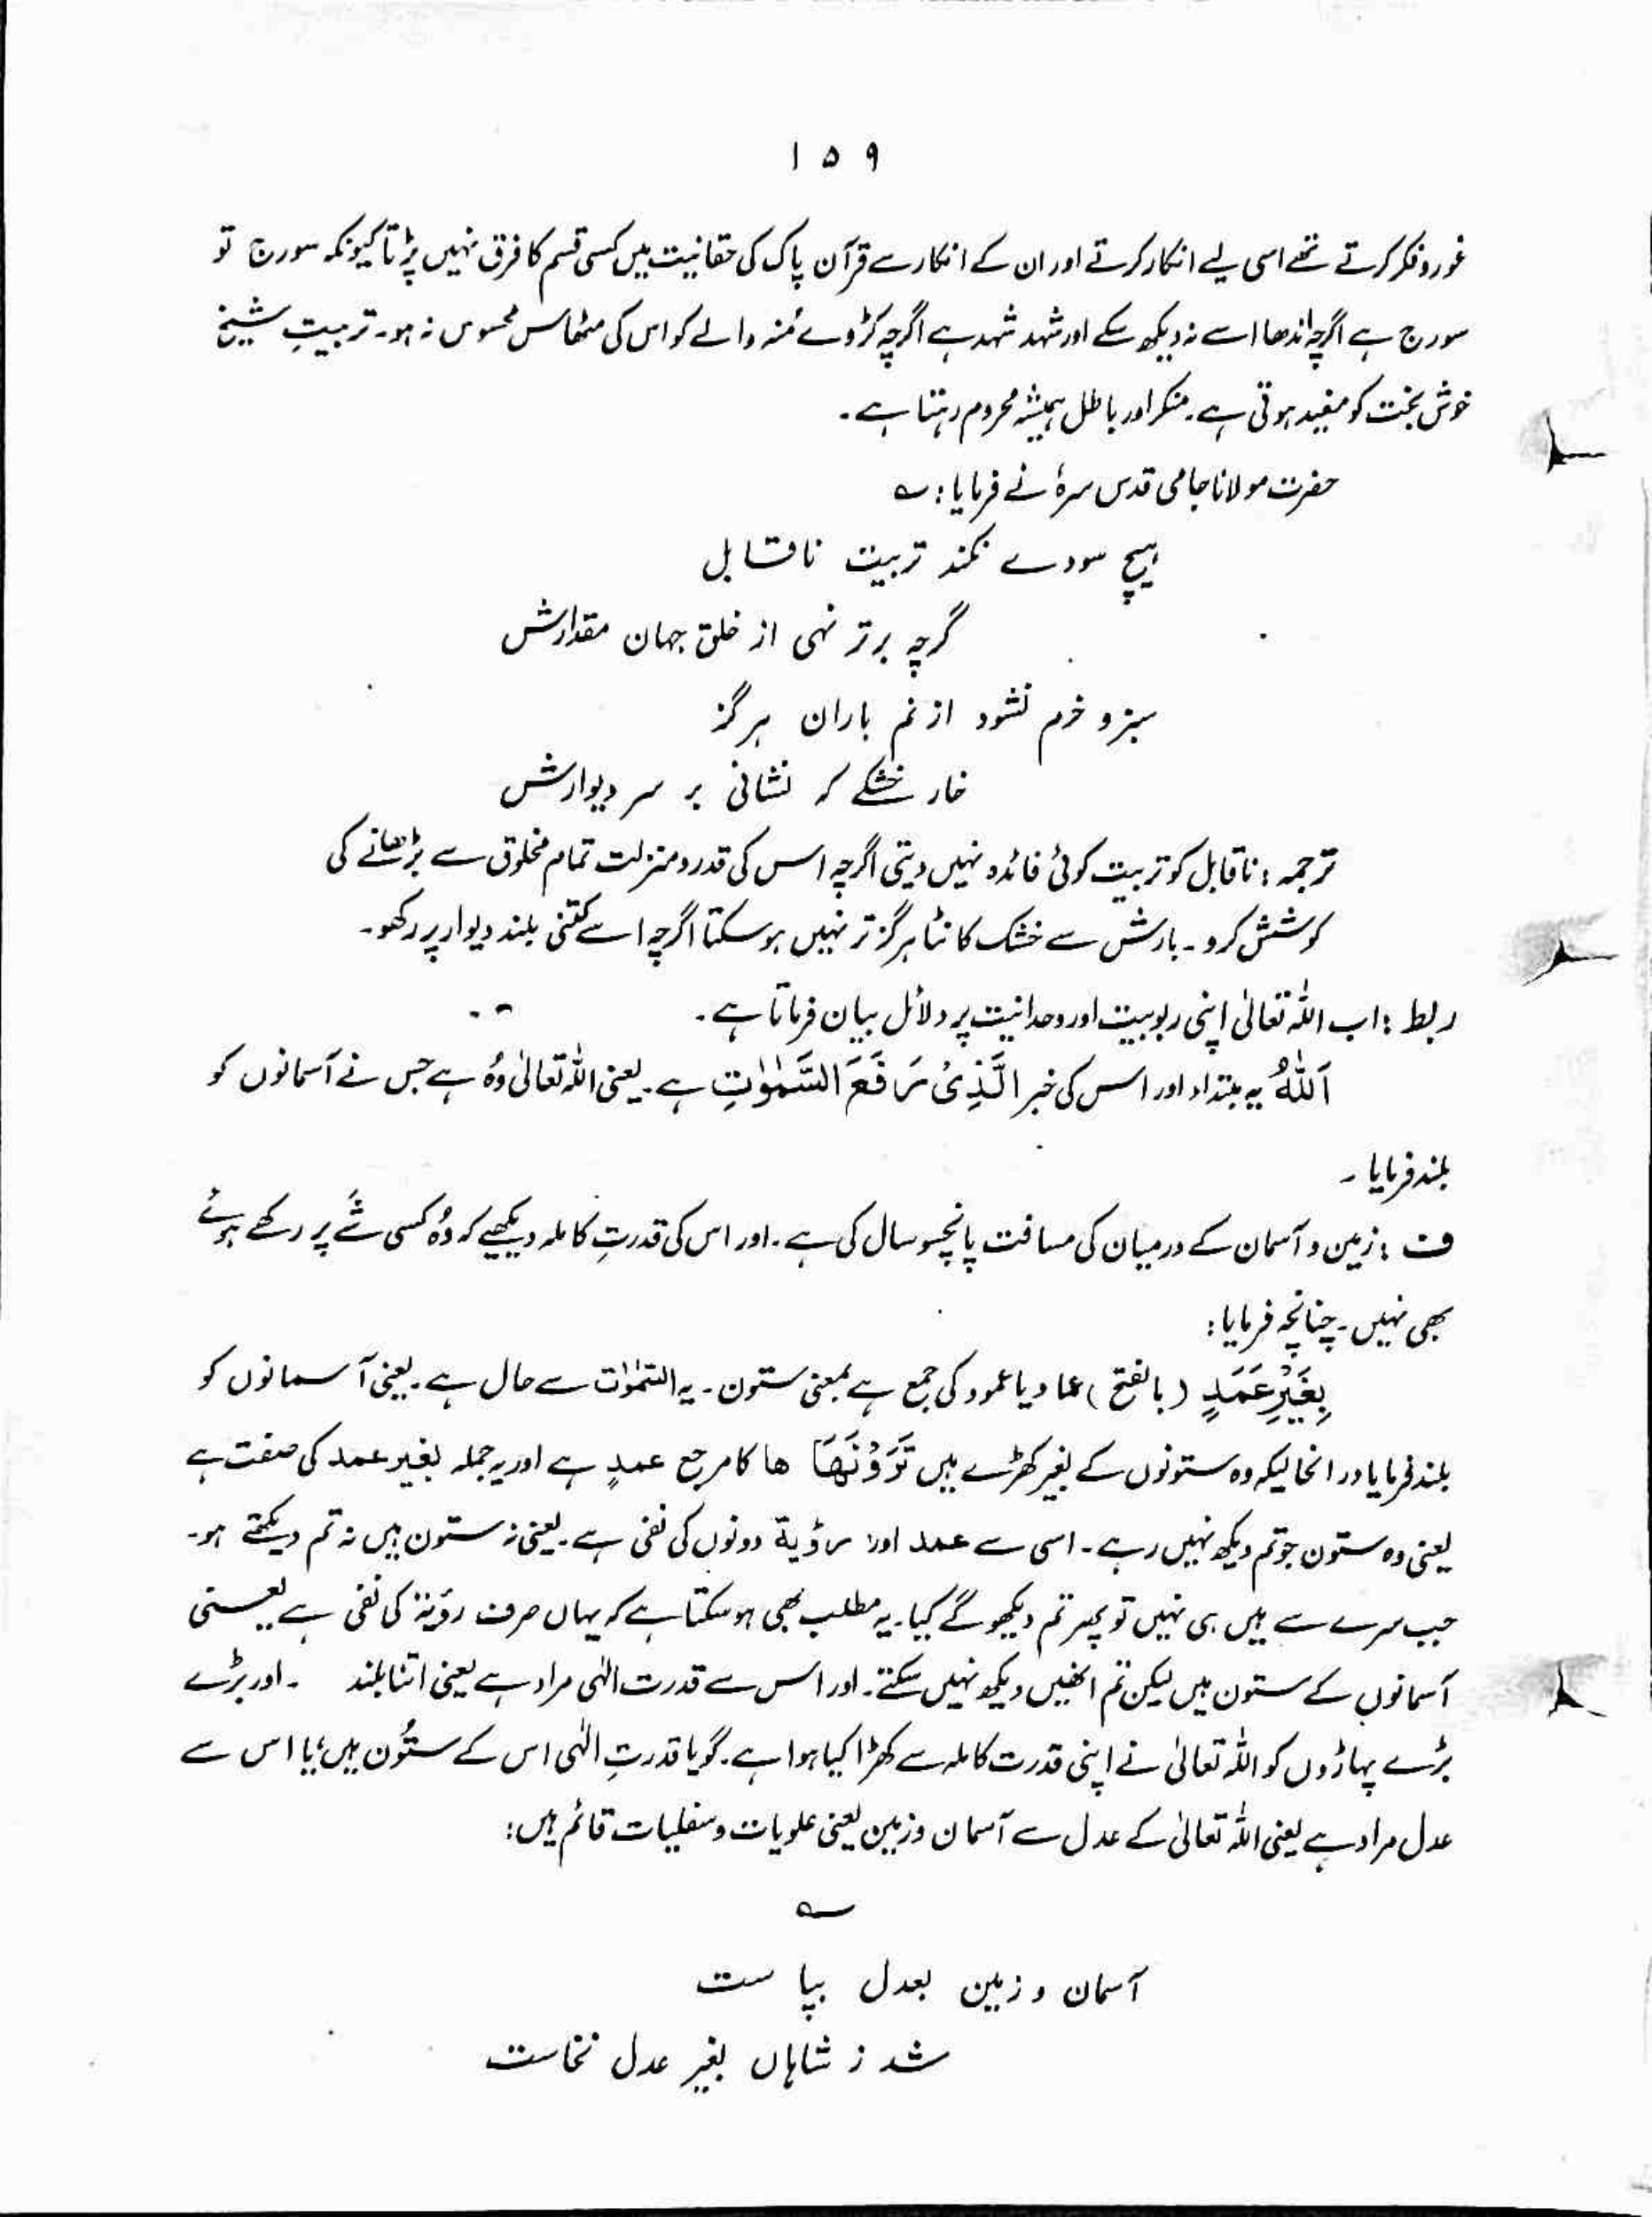 ۱۵۹
غور و فکر کرتے تھے اسی لیے انکار کرتے اور ان کے انکار سے قرآن پاک کی حقانیت میں کسی قسم کا فرق نہیں پڑتا کیونکہ سورج تو
سورج ہے اگرچہ اندھا اسے نہ دیکھ سکے اور شہد شہد ہے اگرچہ کڑوے مُنہ والے کو اس کی مٹھاس محسوس نہ ہو۔ تربیتِ شیخ
خوش بخت کو مفید ہوتی ہے۔ منکر اور باطل ہمیشہ محروم رہتا ہے۔
حضرت مولانا جامی قدس سرہٗ نے فرمایا : ؎
ہیچ سودے نکند تربیت ناقابل
گرچہ برتر نہی از خلق جہان مقدارش
سبز و خرم نشود از نم باران ہرگز
خار خشکے کہ نشانی بر سر دیوارش
ترجمہ : ناقابل کو تربیت کوئی فائدہ نہیں دیتی اگرچہ اس کی قدر و منزلت تمام مخلوق سے بڑھانے کی
کوشش کرو۔ بارش سے خشک کانٹا ہرگز تر نہیں ہو سکتا اگرچہ اسے کتنی بلند دیوار پر رکھو۔
ربط : اب اللہ تعالیٰ اپنی ربوبیت اور وحدانیت پر دلائل بیان فرماتا ہے۔
اَللّٰہُ یہ مبتداء اور اس کی خبر الَّذِیْ رَفَعَ السَّمٰوٰتِ ہے۔ یعنی اللہ تعالیٰ وُہ ہے جس نے آسمانوں کو
بلند فرمایا۔
ف : زمین و آسمان کے درمیان کی مسافت پانچسو سال کی ہے۔ اور اس کی قدرتِ کاملہ دیکھیے کہ وُہ کسی شَے پر رکھے ہوئے
بھی نہیں۔ چنانچہ فرمایا :
بِغَیْرِ عَمَدٍ (بالفتح) عماد یا عمود کی جمع ہے بمعنی ستون۔ یہ السّمٰوٰت سے حال ہے۔ یعنی آسمانوں کو
بلند فرمایا در انحالیکہ وہ ستونوں کے بغیر کھڑے ہیں تَرَوْنَھَا ھا کا مرجع عمدٍ ہے اور یہ جملہ بغیر عمد کی صفت ہے
یعنی وہ ستون جو تم دیکھ نہیں رہے۔ اسی سے عمد اور رؤیة دونوں کی نفی ہے۔ یعنی نہ ستون ہیں نہ تم دیکھتے ہو۔
جب سرے سے ہیں ہی نہیں تو پھر تم دیکھو گے کیا۔ یہ مطلب بھی ہو سکتا ہے کہ یہاں صرف رؤیۃ کی نفی ہے یعنی
آسمانوں کے ستون ہیں لیکن تم انھیں دیکھ نہیں سکتے۔ اور اس سے قدرت الٰہی مراد ہے یعنی اتنا بلند ۔ اور بڑے
بڑے پہاڑوں کو اللہ تعالیٰ نے اپنی قدرت کاملہ سے کھڑا کیا ہوا ہے۔ گویا قدرتِ الٰہی اس کے ستُون ہیں؛ یا اس سے
عدل مراد ہے یعنی اللہ تعالیٰ کے عدل سے آسمان و زمین یعنی علویات و سفلیات قائم ہیں :
؎
آسمان و زمین بعدل بپاست
شد ز شاہاں بغیر عدل نخاست